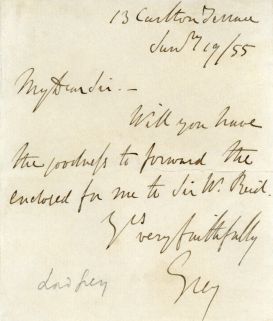 13 Carlton Terrace
Jany 19/55
My Dear Sir. —
Will you have
the goodness to forward the
enclosed for me to Sir Wm. Reid.
Yrs
very faithfully
Grey
Lord Grey